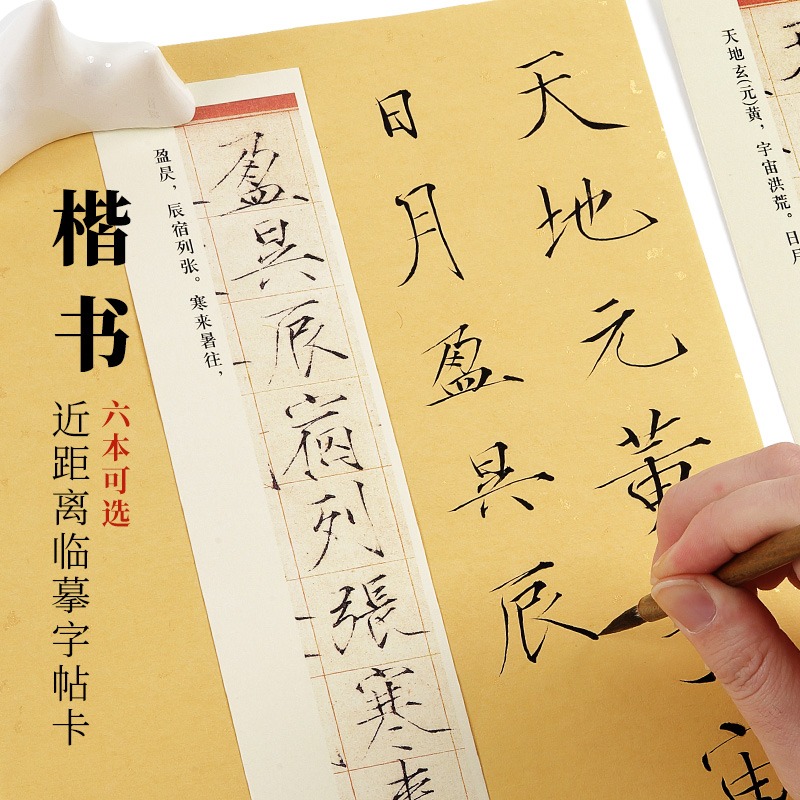 楷书
六本可选
近距离临摹字帖卡
天地元黄
宙
日月盈昃辰
盈昃辰宿列張寒来
盈昃，辰宿列张。寒来暑往，
天地玄(元)黄，宇宙洪荒。日月
天